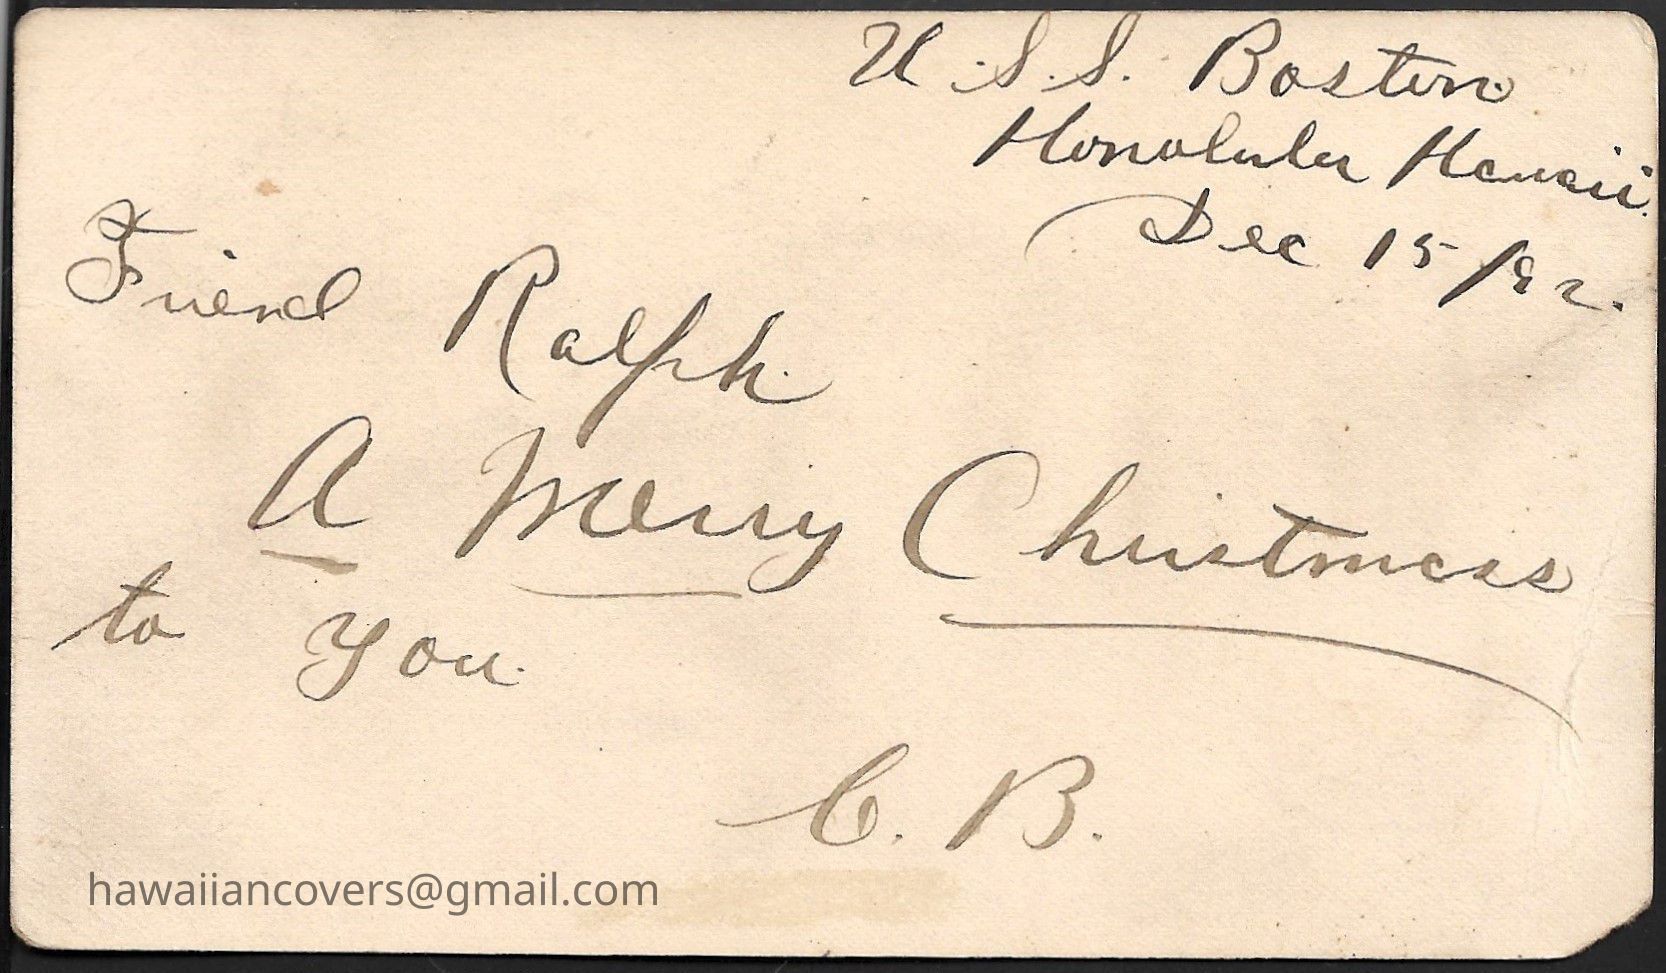 U.S.S. Boston.
Honolulu Hawaii.
Dec 15/92.
Friend Ralph.
A Merry Christmas
to You.
C. B.
hawaiiancovers@gmail.com